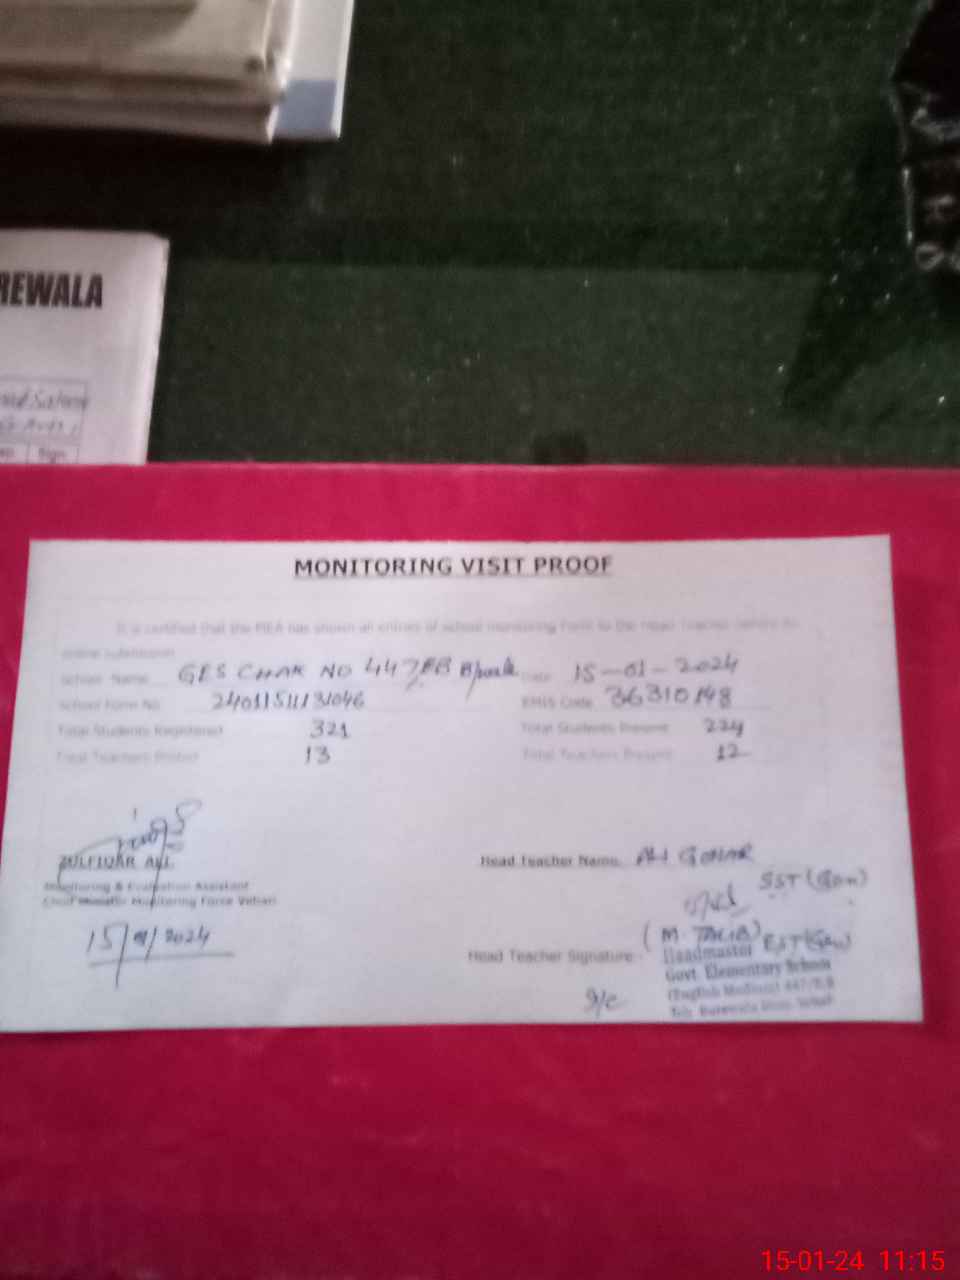 REWALA
Sign
MONITORING VISIT PROOF
It is certified that the MEA has shown all entries of school monitoring form to the Head Teacher before its
online submission
School Name GES CHAK NO 447/EB Date 15-01-2024
School Form No. EMIS Code 36310148
Total Students Registered 321 Total Students Present 224
Total Teachers Posted 13 Total Teachers Present 12
ZULFIQAR ALI
Monitoring & Evaluation Assistant
Chief Minister Monitoring Force Vehari
15/01/2024
Head Teacher Name ALI GOHAR
SST (Gen)
(M. TALIB) EST (Gen)
Head Teacher Signature
Headmaster
Govt. Elementary School
(English Medium) 447/E.B
I/C
15-01-24 11:15